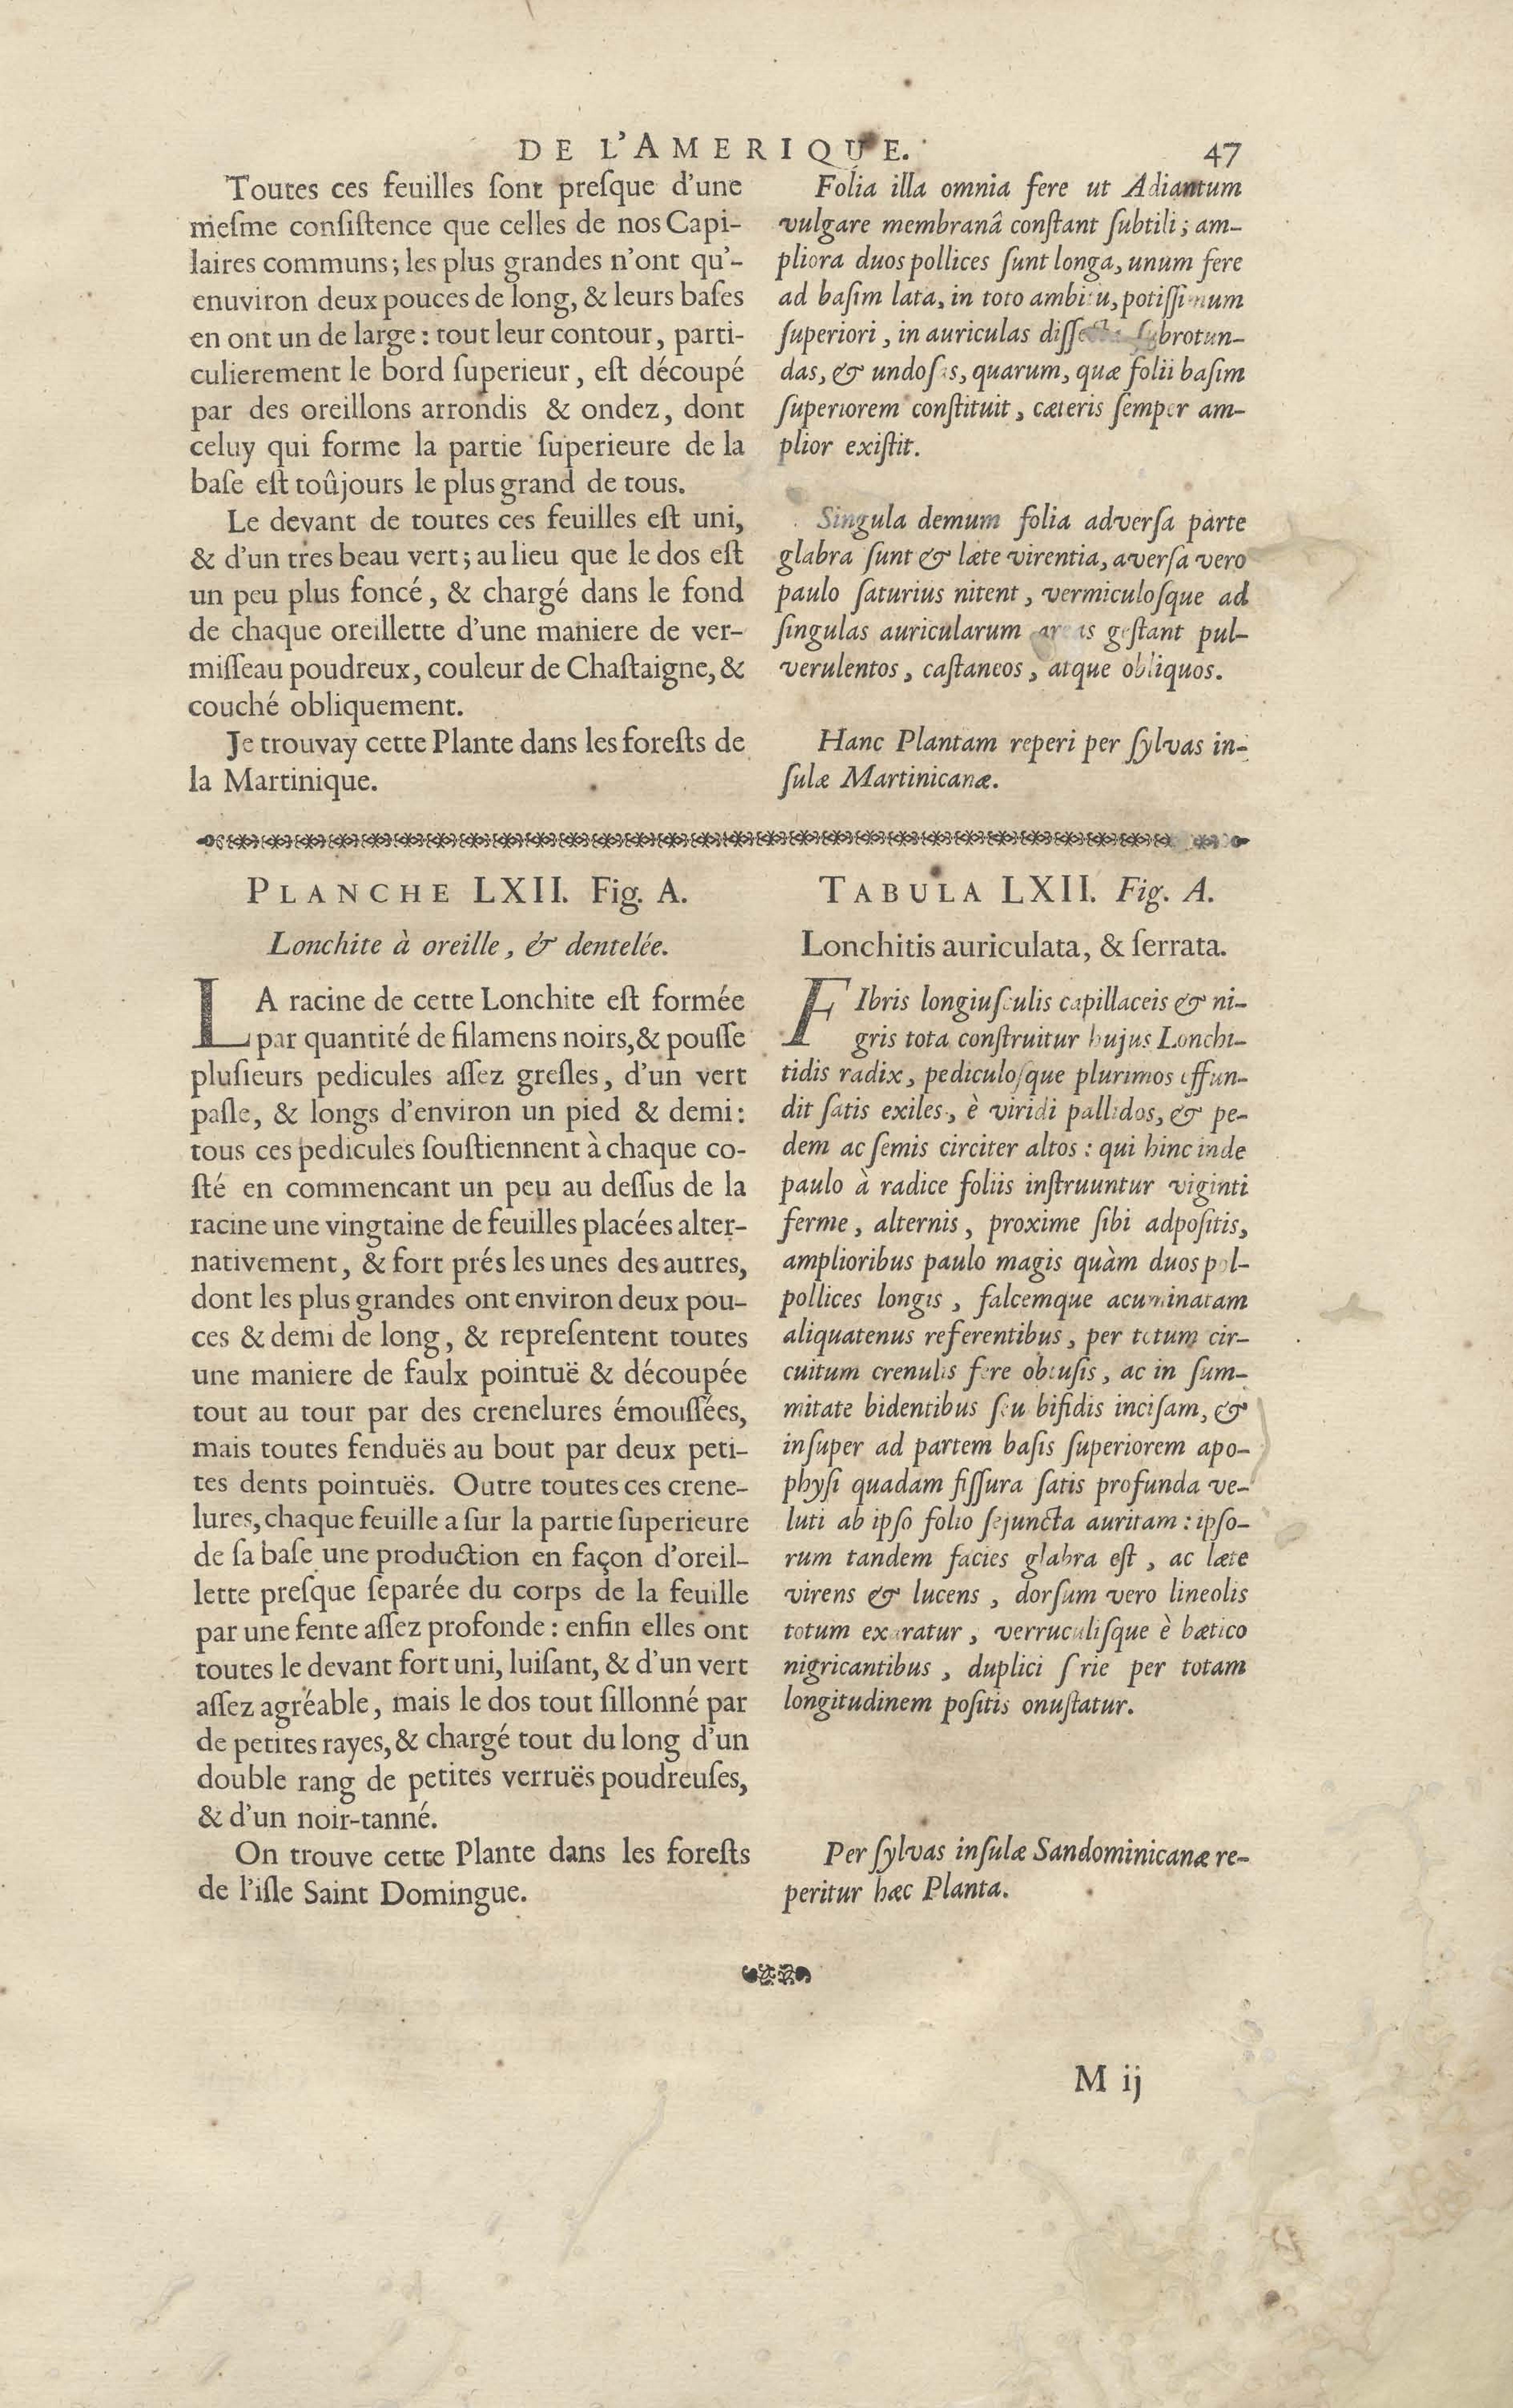 DE L'AMERIQUE. 47
Toutes ces feuilles ſont preſque d'une
meſme conſiſtence que celles de nos Capi-
laires communs; les plus grandes n'ont qu'-
enuviron deux pouces de long, & leurs baſes
en ont un de large: tout leur contour, parti-
culierement le bord ſuperieur, eſt découpé
par des oreillons arrondis & ondez, dont
celuy qui forme la partie ſuperieure de la
baſe eſt toûjours le plus grand de tous.
Le devant de toutes ces feuilles eſt uni,
& d'un tres beau vert; au lieu que le dos eſt
un peu plus foncé, & chargé dans le fond
de chaque oreillette d'une maniere de ver-
miſſeau poudreux, couleur de Chaſtaigne, &
couché obliquement.
Je trouvay cette Plante dans les foreſts de
la Martinique.
Folia illa omnia fere ut Adiantum
vulgare membranâ conſtant ſubtili; am-
pliora duos pollices ſunt longa, unum fere
ad baſim lata, in toto ambitu, potiſſimum
ſuperiori, in auriculas diſſecta ſubrotun-
das, & undoſas, quarum, quæ folii baſim
ſuperiorem conſtituit, cæteris ſemper am-
plior exiſtit.
Singula demum folia adverſa parte
glabra ſunt & læte virentia, averſa vero
paulo ſaturius nitent, vermiculoſque ad
ſingulas auricularum areas geſtant pul-
verulentos, caſtaneos, atque obliquos.
Hanc Plantam reperi per ſylvas in-
ſulæ Martinicanæ.
PLANCHE LXII. Fig. A.
Lonchite à oreille, & dentelée.
LA racine de cette Lonchite eſt formée
par quantité de filamens noirs, & pouſſe
pluſieurs pedicules aſſez greſles, d'un vert
paſle, & longs d'environ un pied & demi:
tous ces pedicules ſouſtiennent à chaque co-
ſté en commencant un peu au deſſus de la
racine une vingtaine de feuilles placées alter-
nativement, & fort prés les unes des autres,
dont les plus grandes ont environ deux pou-
ces & demi de long, & repreſentent toutes
une maniere de faulx pointuë & découpée
tout au tour par des crenelures émouſſées,
mais toutes fenduës au bout par deux peti-
tes dents pointuës. Outre toutes ces crene-
lures, chaque feuille a ſur la partie ſuperieure
de ſa baſe une production en façon d'oreil-
lette preſque ſeparée du corps de la feuille
par une fente aſſez profonde: enfin elles ont
toutes le devant fort uni, luiſant, & d'un vert
aſſez agréable, mais le dos tout ſillonné par
de petites rayes, & chargé tout du long d'un
double rang de petites verruës poudreuſes,
& d'un noir-tanné.
On trouve cette Plante dans les foreſts
de l'iſle Saint Domingue.
TABULA LXII. Fig. A.
Lonchitis auriculata, & ſerrata.
FIbris longiuſculis capillaceis & ni-
gris tota conſtruitur hujus Lonchi-
tidis radix, pediculoſque plurimos effun-
dit ſatis exiles, è viridi pallidos, & pe-
dem ac ſemis circiter altos: qui hinc inde
paulo à radice foliis inſtruuntur viginti
ferme, alternis, proxime ſibi adpoſitis,
amplioribus paulo magis quàm duos pol-
pollices longis, falcemque acuminatam
aliquatenus referentibus, per totum cir-
cuitum crenulis fere obtuſis, ac in ſum-
mitate bidentibus ſeu bifidis inciſam, &
inſuper ad partem baſis ſuperiorem apo-
phyſi quadam fiſſura ſatis profunda ve-
luti ab ipſo folio ſejuncta auritam: ipſo-
rum tandem facies glabra eſt, ac læte
virens & lucens, dorſum vero lineolis
totum exaratur, verruculiſque è bætico
nigricantibus, duplici ſerie per totam
longitudinem poſitis onuſtatur.
Per ſylvas inſulæ Sandominicanæ re-
peritur hæc Planta.
M ij